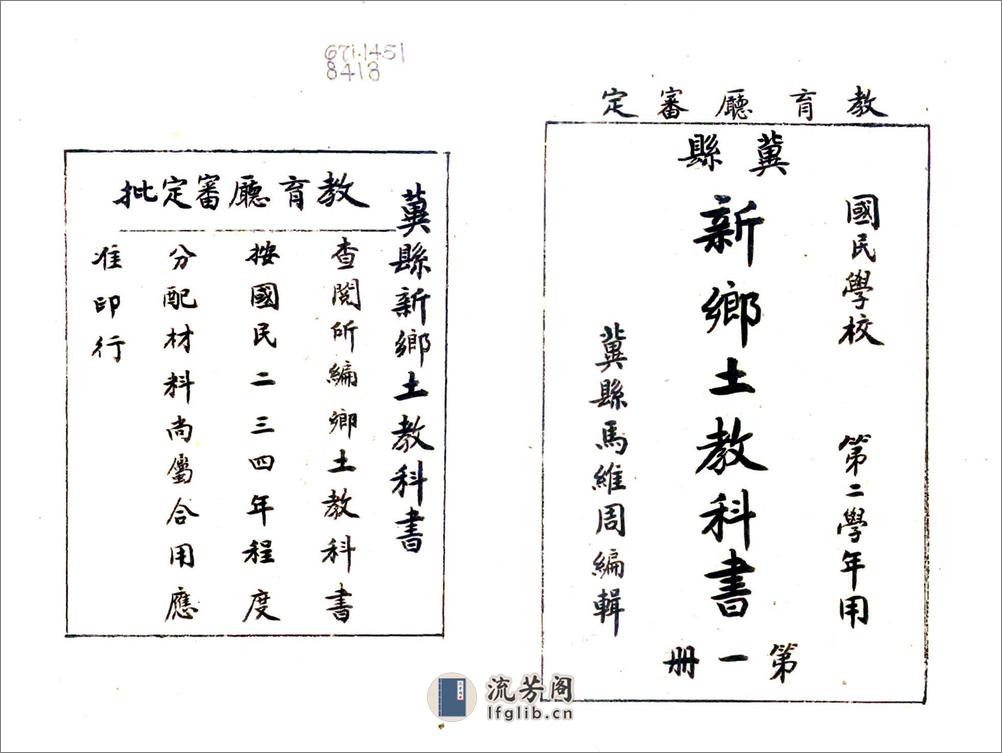 教育廳審定
國民學校 第二學年用
冀縣
新鄉土教科書
第一冊
冀縣馬維周編輯
671.1451
8413
冀縣新鄉土教科書
教育廳審定批
查閱所編鄉土教科書
按國民二三四年程度
分配材料尚屬合用應
准印行
流芳阁
lfglib.cn